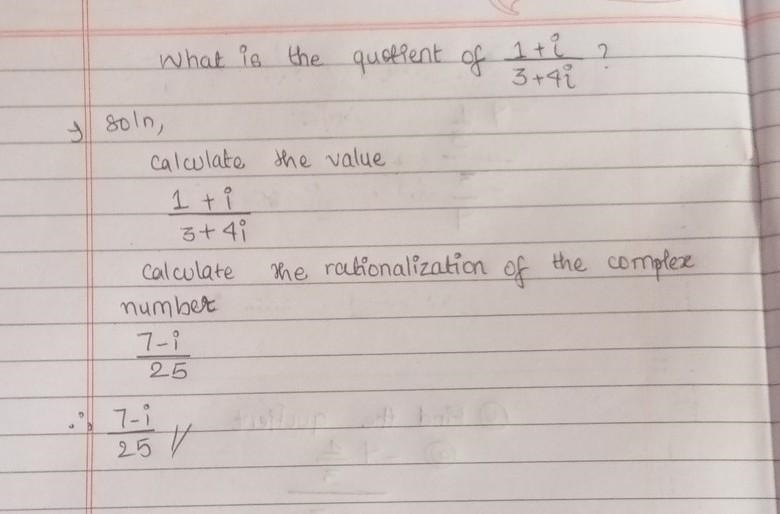 What is the quotient of 1+i / 3+4i ?
soln,
calculate the value
1 + i
3+ 4i
calculate the rationalization of the complex
number
7-i
25
∴ 7-i
25 //